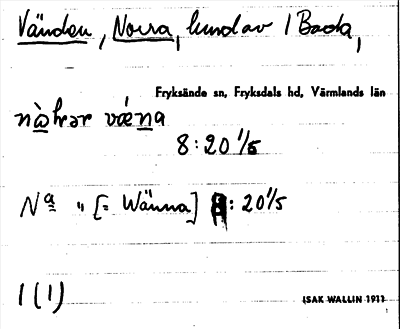 Vänden, Norra, lund av / Bada,
Fryksände sn, Fryksdals hd, Värmlands län
8:20 1/5
Na " [= Wänna] 8: 20 1/5
1 (1)
ISAK WALLIN 1911